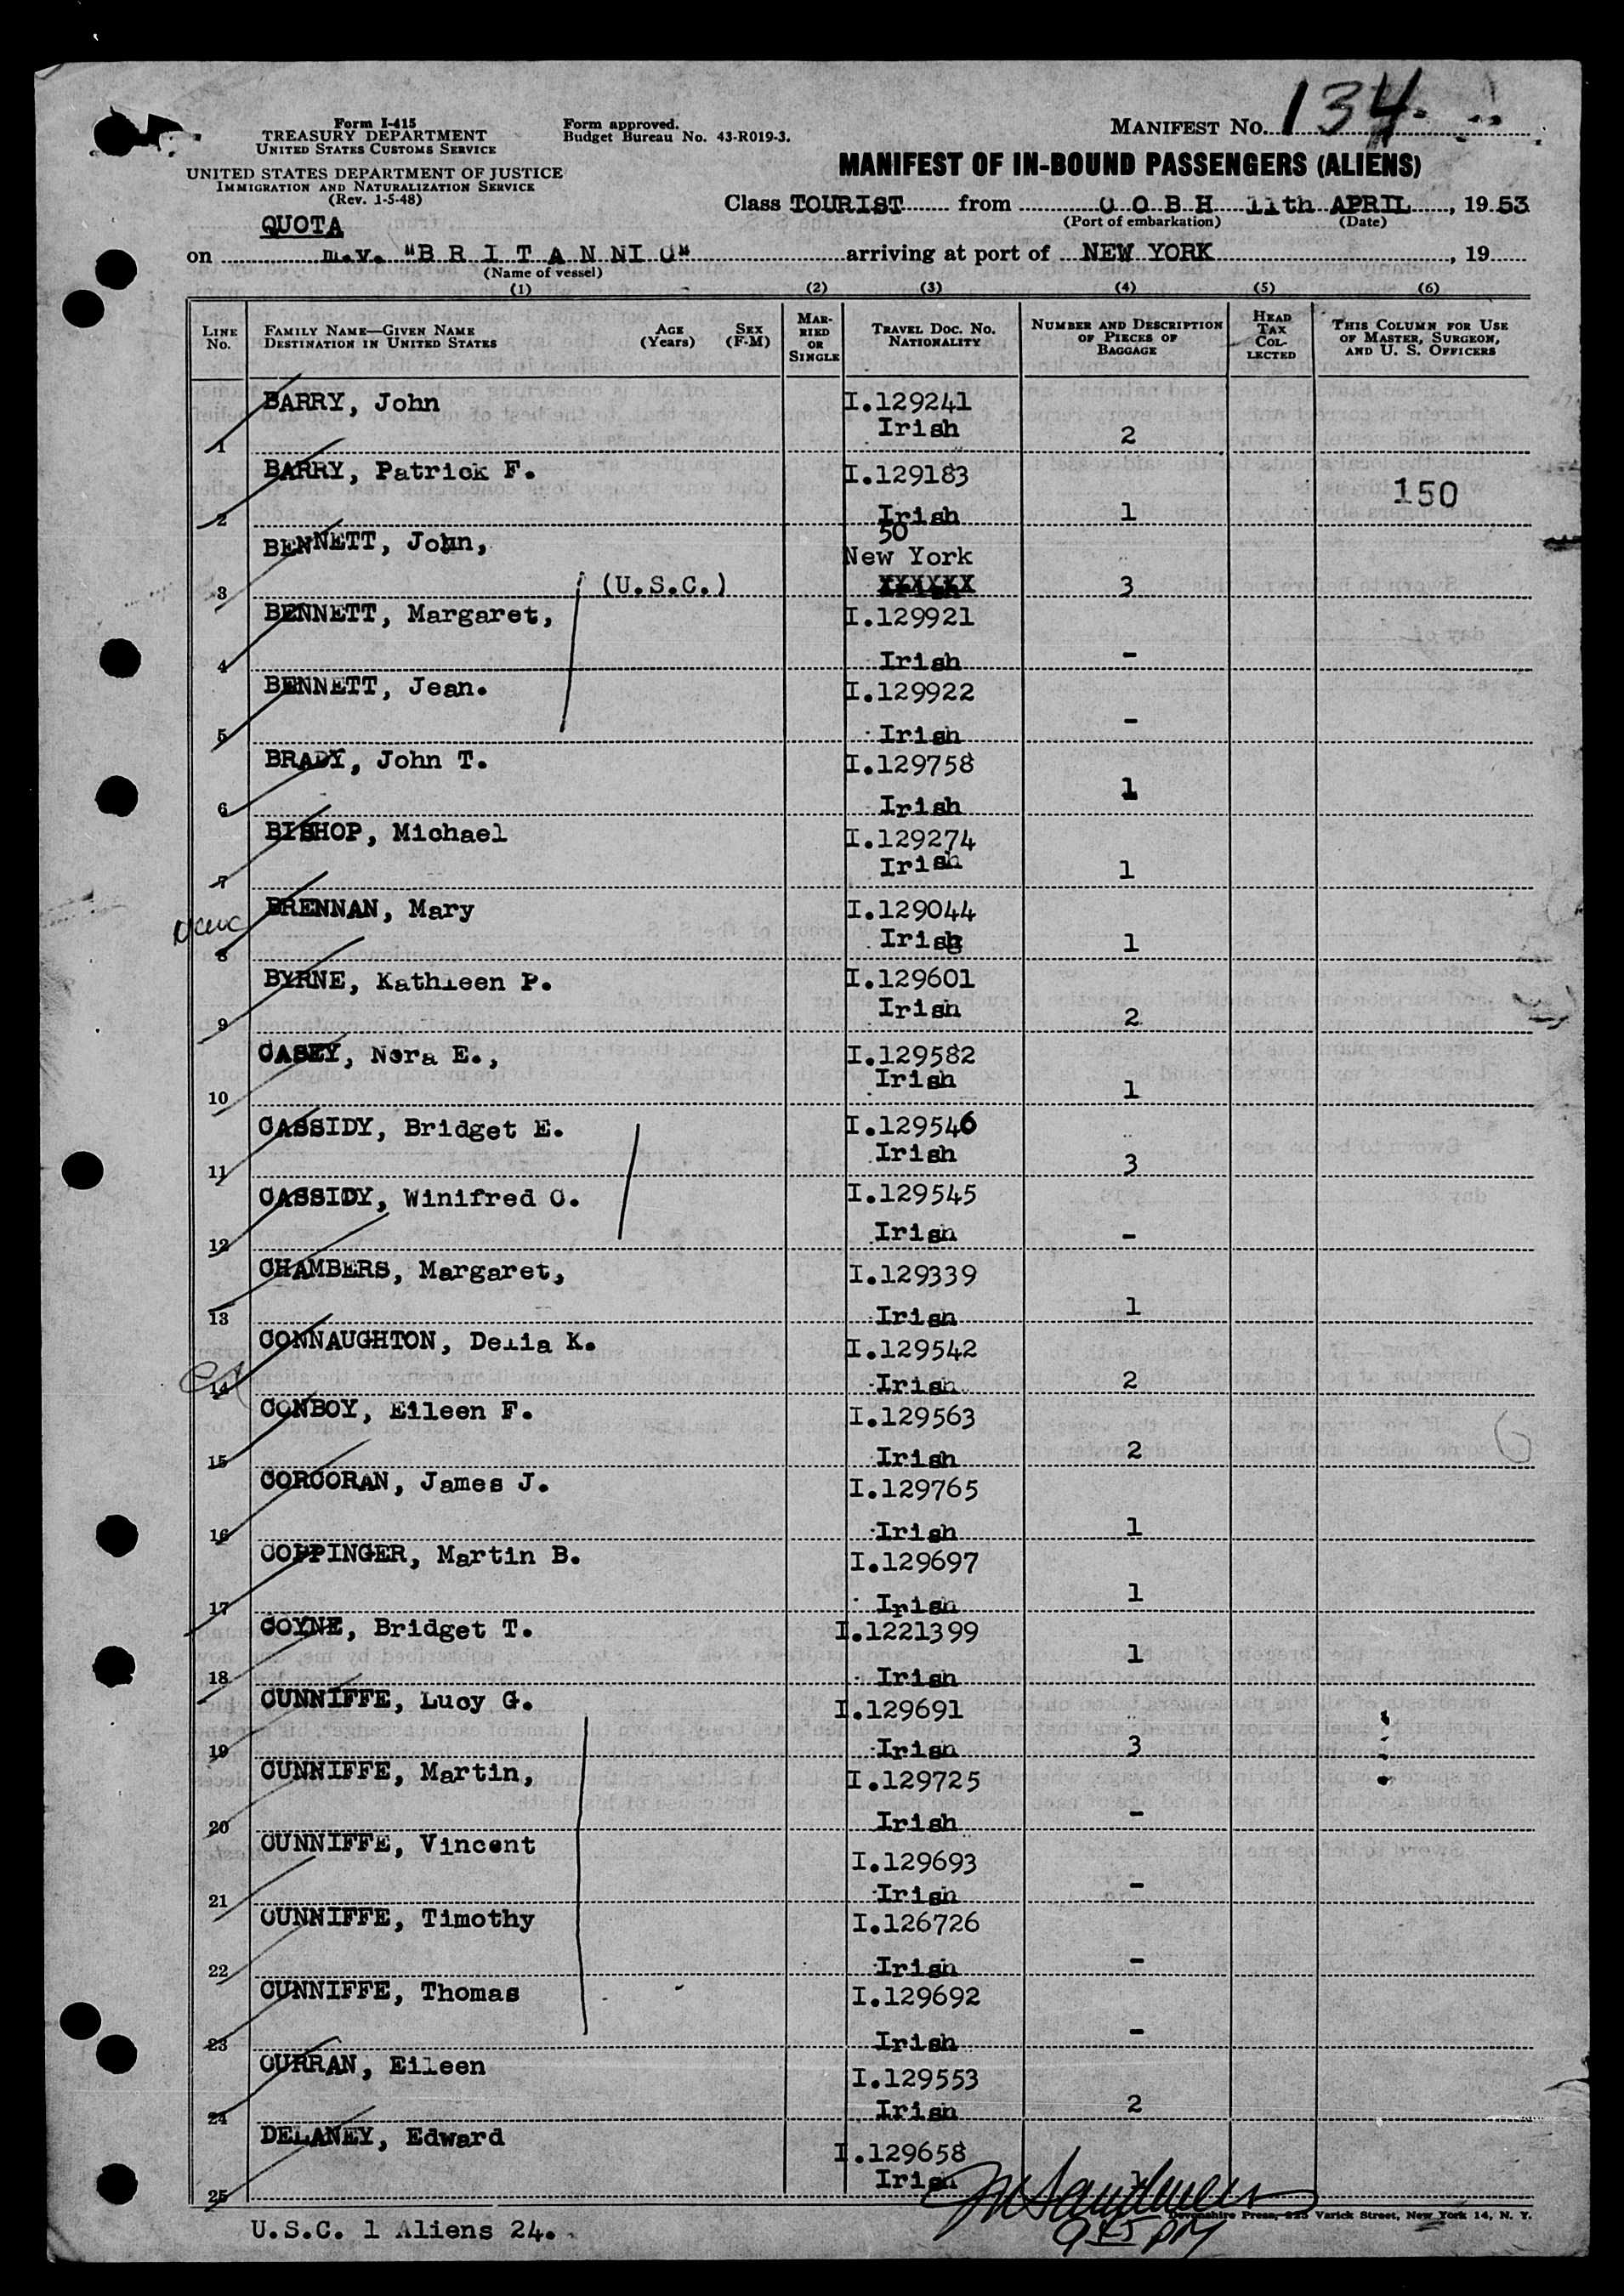 Form I-415
TREASURY DEPARTMENT
UNITED STATES CUSTOMS SERVICE
UNITED STATES DEPARTMENT OF JUSTICE
IMMIGRATION AND NATURALIZATION SERVICE
(Rev. 1-5-48)
Form approved.
Budget Bureau No. 43-R019-3.
MANIFEST No. 134
MANIFEST OF IN-BOUND PASSENGERS (ALIENS)
Class TOURIST from C O B H 11th APRIL, 19 53
(Port of embarkation) (Date)
QUOTA
on m.v. "B R I T A N NI C" arriving at port of NEW YORK, 19
(Name of vessel)
(1) (2) (3) (4) (5) (6)
LINE No.
FAMILY NAME—GIVEN NAME
DESTINATION IN UNITED STATES
AGE (Years)
SEX (F-M)
MARRIED OR SINGLE
TRAVEL DOC. NO. NATIONALITY
NUMBER AND DESCRIPTION OF PIECES OF BAGGAGE
HEAD TAX COLLECTED
THIS COLUMN FOR USE OF MASTER, SURGEON, AND U. S. OFFICERS
BARRY, John I.129241
1 Irish 2
BARRY, Patrick F. I.129183
150
2 Irish 1
50
BENNETT, John, New York
3 (U.S.C.) XXXXXX 3
BENNETT, Margaret, I.129921
4 Irish -
BENNETT, Jean. I.129922
5 Irish -
BRADY, John T. I.129758
6 Irish 1
BISHOP, Michael I.129274
7 Irish 1
BRENNAN, Mary I.129044
8 Irish 1
BYRNE, Kathleen P. I.129601
9 Irish 2
CASEY, Nora E., I.129582
10 Irish 1
CASSIDY, Bridget E. I.129546
11 Irish 3
CASSIDY, Winifred C. I.129545
12 Irish -
CHAMBERS, Margaret, I.129339
13 Irish 1
CONNAUGHTON, Delia K. I.129542
14 Irish 2
CONBOY, Eileen F. I.129563
15 Irish 2
CORCORAN, James J. I.129765
16 Irish 1
COPPINGER, Martin B. I.129697
17 Irish 1
COYNE, Bridget T. I.1221399
18 Irish 1
CUNNIFFE, Lucy G. I.129691
19 Irish 3
CUNNIFFE, Martin, I.129725
20 Irish -
CUNNIFFE, Vincent I.129693
21 Irish -
CUNNIFFE, Timothy I.126726
22 Irish -
CUNNIFFE, Thomas I.129692
23 Irish -
CURRAN, Eileen I.129553
24 Irish 2
DELANEY, Edward I.129658
25 Irish 1
Devonshire Press, 225 Varick Street, New York 14, N. Y.
U.S.C. 1 Aliens 24.
9 45 PM